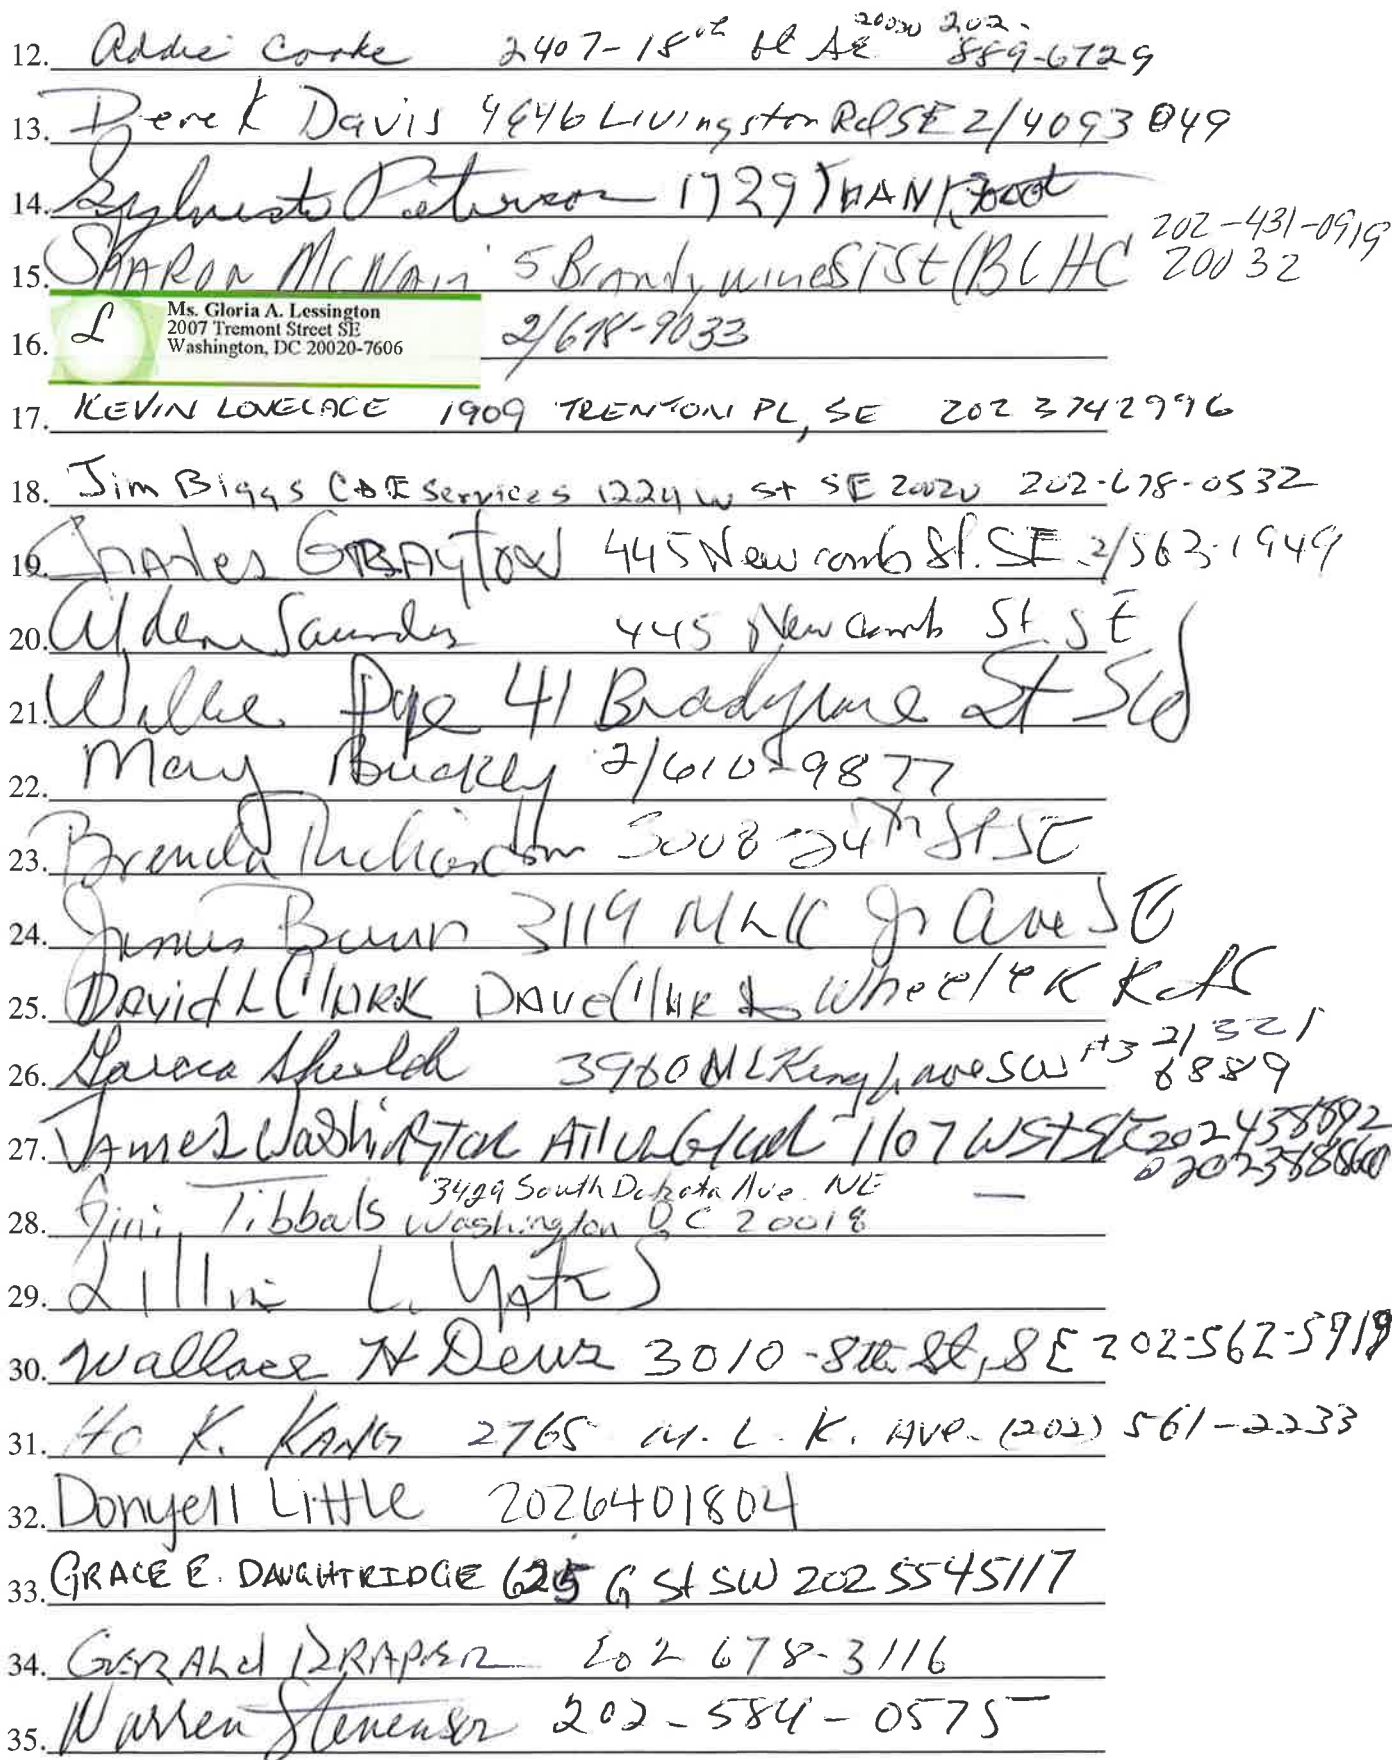 12. Addie Cooke 2407-18th St SE 20020 202-889-6729
13. Derek Davis 4646 Livingston Rd SE 2/4093049
14. Sylvester Peterson 1729
15. SHARON McNair 5 Brandywine St (BCHC 202-431-0919 20032
16. L Ms. Gloria A. Lessington
2007 Tremont Street SE
Washington, DC 20020-7606
2/678-9033
17. KEVIN LOVELACE 1909 TRENTON PL, SE 202 3742996
18. Jim Biggs C&E Services 1224 W St SE 20020 202-678-0532
19. Charles GRAYTON 445 Newcomb St. SE 2/563-1949
20. Alden Saunders 445 Newcomb St. SE
21. Willie Dye 41 Bradywine St SW
22. Mary Buckley 2/610-9877
23. Brenda Richardson 3008-24th St SE
24. James Bunn 3119 MLK Jr Ave SE
25. David L Clark Dave Clark Wheeler
26. Sheild 3960 ML King Ave SW #3 2/321 6889
27. James Washington 1107 W St SE
28. Tibbals 3429 South Dakota Ave. NE
Washington DC 20018
29. Lillie L. Yates
30. Wallace H Dews 3010-8th St, SE 202-562-5919
31. Ho K. KANG 2765 M. L. K. Ave. (202) 561-2233
32. Donyell Little 2026401804
33. GRACE E. DAUGHTRIDGE 625 G St SW 202 5545117
34. GERALd DRAPER 202 678-3116
35. Warren Stevenson 202-584-0575